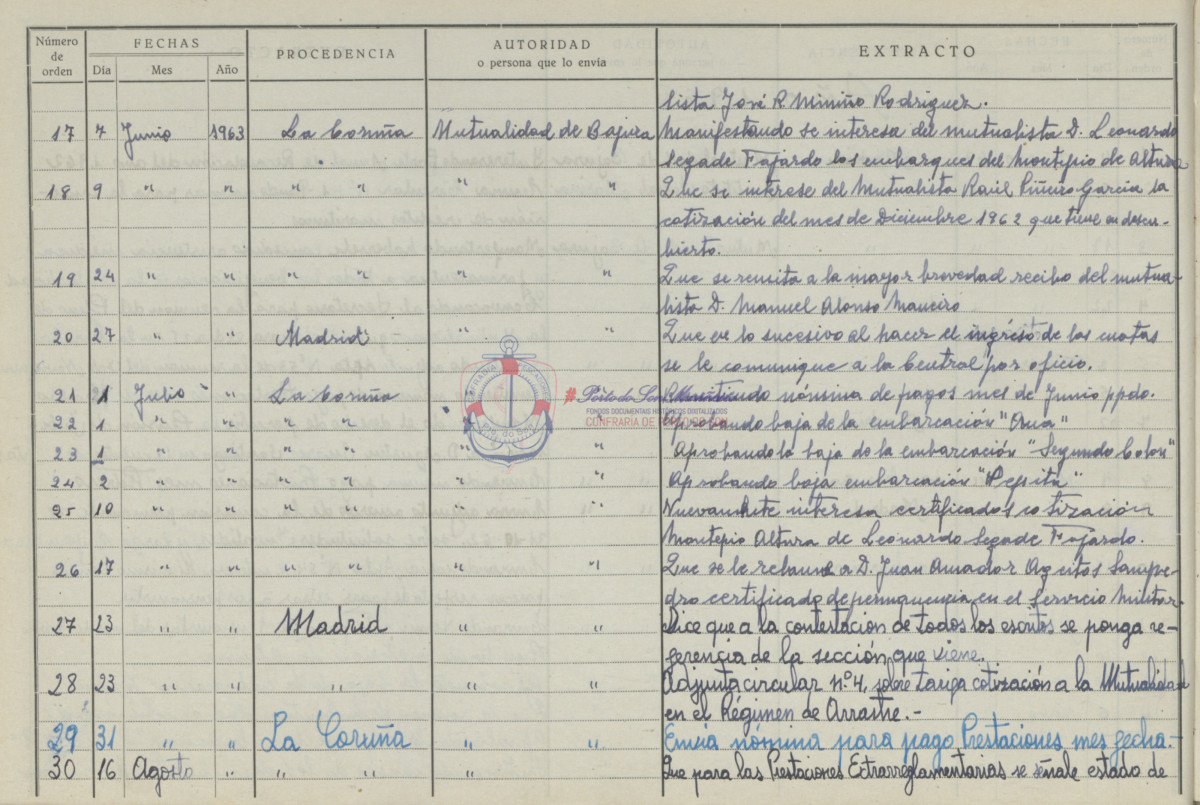 Número de orden FECHAS PROCEDENCIA AUTORIDAD o persona que lo envía EXTRACTO
Día Mes Año
lista José R. Miniño Rodriguez.
17 7 Junio 1963 La Coruña Mutualidad de Bajura Manifestando se interesa del mutualista D. Leonardo
Segade Fajardo los embarques del Montepio de Altura
18 9 " " " " " " Que se interese del Mutualista Raúl Piñeiro García la
cotización del mes de Diciembre 1962 que tiene en descu-
bierto.
19 24 " " " " " " Que se remita a la mayor brevedad recibo del mutua-
lista D. Manuel Alonso Maneiro
20 27 " " Madrid " " Que en lo sucesivo al hacer el ingreso de las cuotas
se le comunique a la Central por oficio.
21 1 Julio " La Coruña Remitiendo nómina de pagos mes de Junio ppdo.
22 1 " " " " " " Aprobando baja de la embarcación
23 1 " " " " " " Aprobando la baja de la embarcación "Segundo Colon"
24 2 " " " " " " Aprobando baja embarcación "Pepita"
25 10 " " " " " " Nuevamente interesa certificados cotización
Montepio Altura de Leonardo Segade Fajardo.
26 17 " " " " " " Que se le reclame a D. Juan Amador Ageitos Sampe-
dro certificado de permanencia en el Servicio Militar.
27 23 " " Madrid " " Dice que a la contestación de todos los escritos se ponga re-
ferencia de la sección que viene.
28 23 " " " " " Adjunta circular nº 4, sobre tarifa cotización a la Mutualidad
en el Régimen de Arrastre.-
29 31 " " La Coruña " " Envia nómina para pago Prestaciones mes fecha.-
30 16 Agosto " " " " " Que para las Prestaciones Extrarreglamentarias se señale estado de
#PortodoSon
FONDOS DOCUMENTAIS HISTÓRICOS DIXITALIZADOS
CONFRARIA DE PORTO DO SON